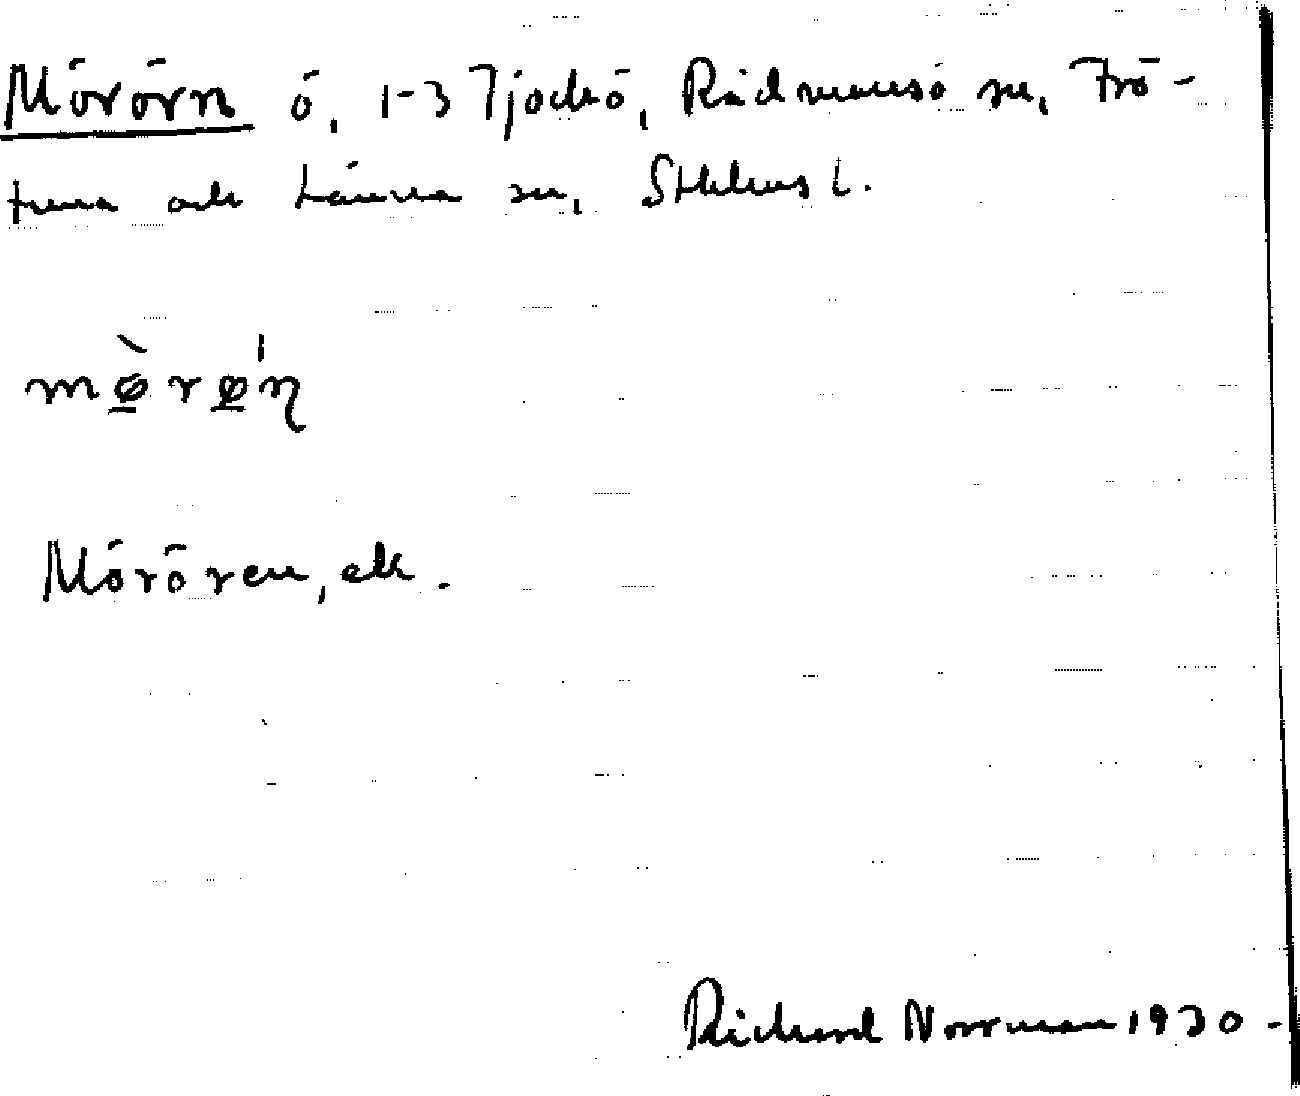 Mörörn ö, 1-3 Tjockö, Rådmansö sn, Frö-
tuna och Länna sn, Sthlms l.
mø̀rø'n
Mörören, ek.
Richard Norrman 1930 -